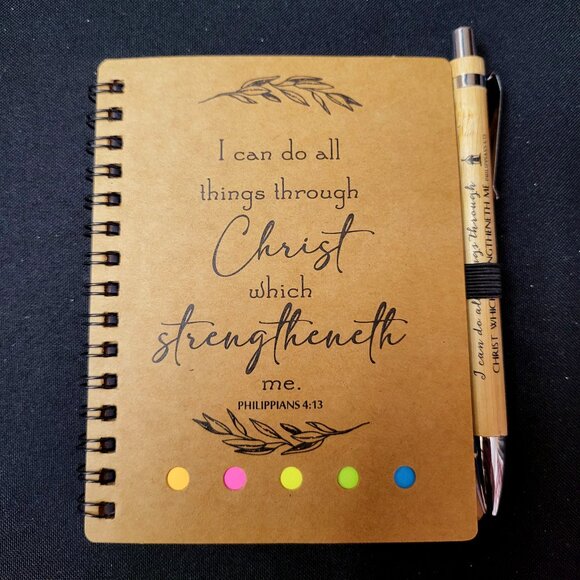 I can do all
things through
Christ
which
strengtheneth
me.
PHILIPPIANS 4:13
I can do all things through
CHRIST WHICH STRENGTHENETH ME